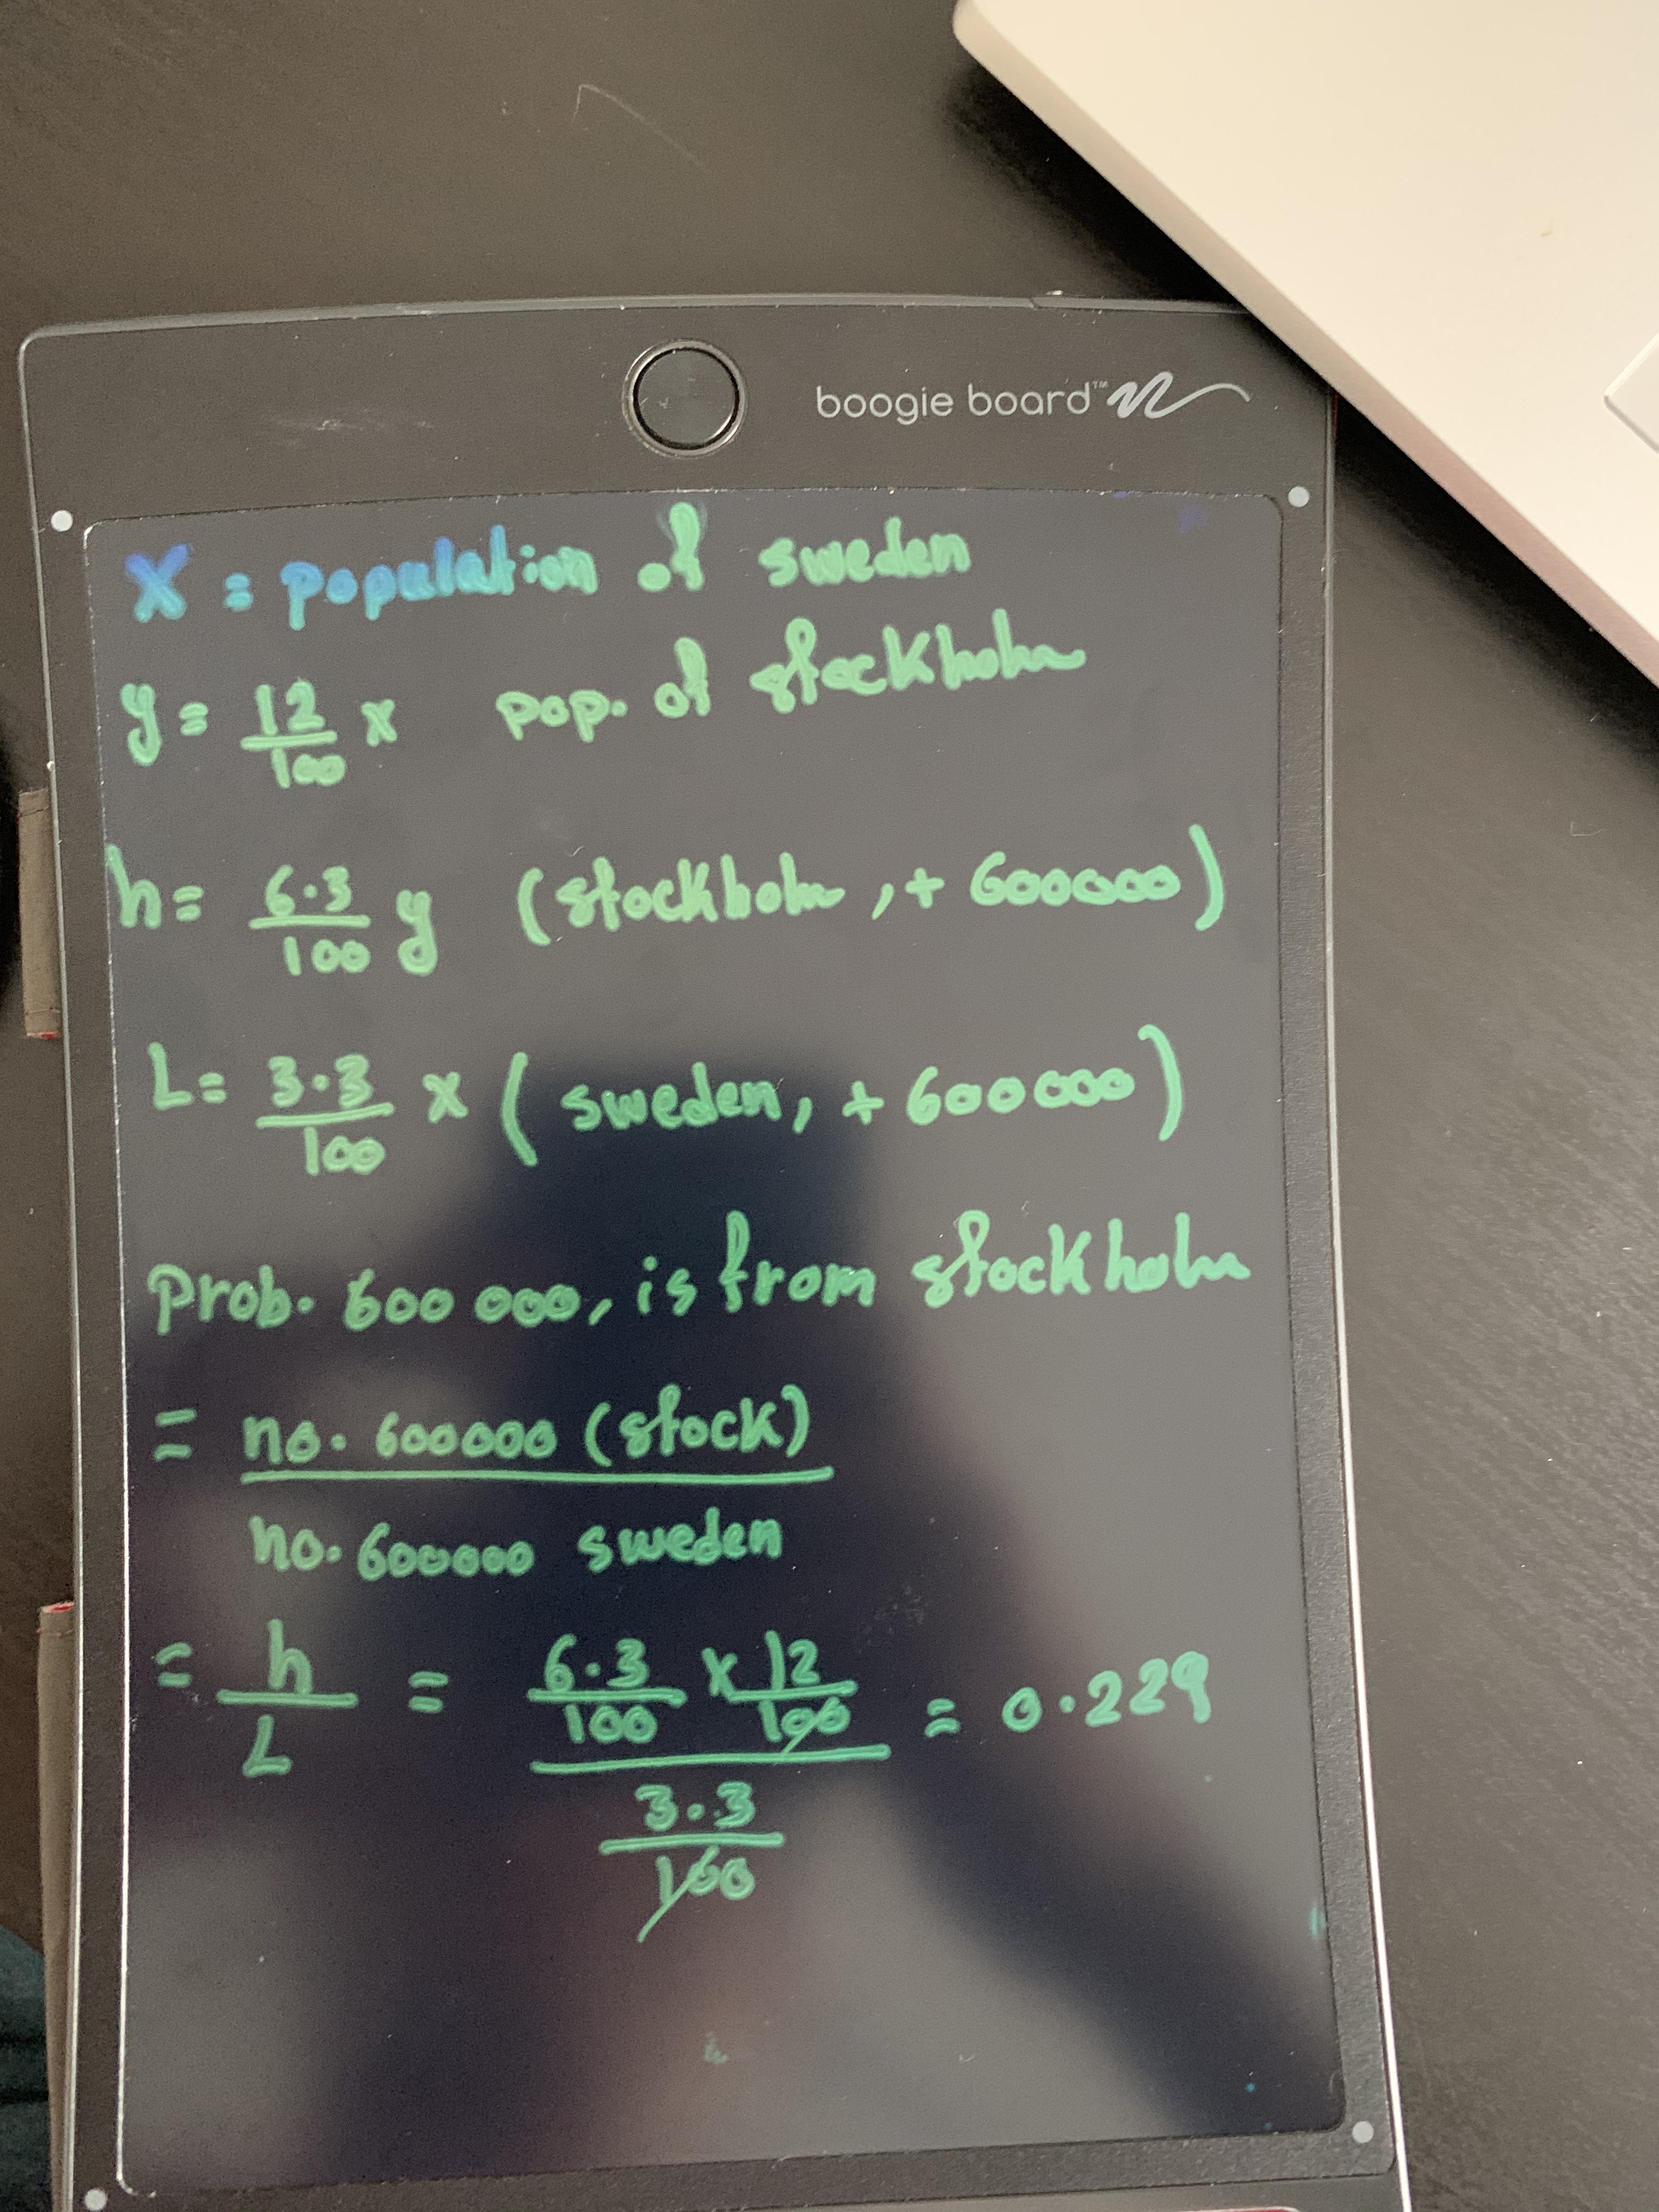 boogie board™
X = population of sweden
y = 12/100 x pop. of stockholm
h = 6.3/100 y (stockholm, + 600000)
L = 3.3/100 x (sweden, + 600000)
Prob. 600 000, is from stockholm
= no. 600000 (stock)
no. 600000 sweden
= h/L = (6.3/100 x 12/100)/(3.3/100) = 0.229